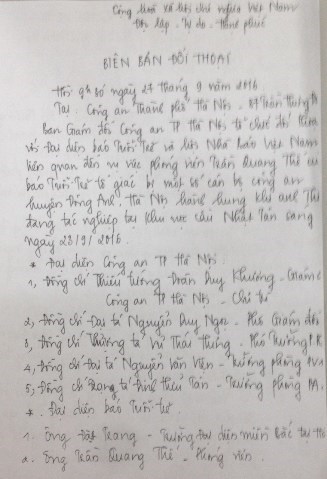 Cộng hòa xã hội chủ nghĩa Việt Nam
Độc lập - Tự do - Hạnh phúc
BIÊN BẢN ĐỐI THOẠI
Hồi 9h 50 ngày 27 tháng 9 năm 2016
Tại Công an Thành phố Hà Nội - 87 Trần Hưng Đạo
Ban Giám đốc Công an TP Hà Nội tổ chức đối thoại
với đại diện báo Tuổi Trẻ và Hội Nhà báo Việt Nam
liên quan đến vụ việc phóng viên Trần Quang Thế của
báo Tuổi Trẻ tố giác bị một số cán bộ công an
huyện Đông Anh, Hà Nội hành hung khi anh Thế
đang tác nghiệp tại khu vực cầu Nhật Tân sáng
ngày 23/9/2016.
* Đại diện Công an TP Hà Nội
1, Đồng chí Thiếu tướng Đoàn Duy Khương - Giám đ
Công an TP Hà Nội - Chủ trì
2, Đồng chí Đại tá Nguyễn Duy Ngọc - Phó Giám đốc
3, Đồng chí Thượng tá Vũ Thái Hưng - Phó Trưởng P.
4, Đồng chí Đại tá Nguyễn Văn Viện - Trưởng phòng
5, Đồng chí Trung tá Đinh Tân - Trưởng phòng PA.
* Đại diện báo Tuổi trẻ
1. Ông Trang - Trưởng Đại diện miền Bắc tại
2. Ông Trần Quang Thế - Phóng viên.